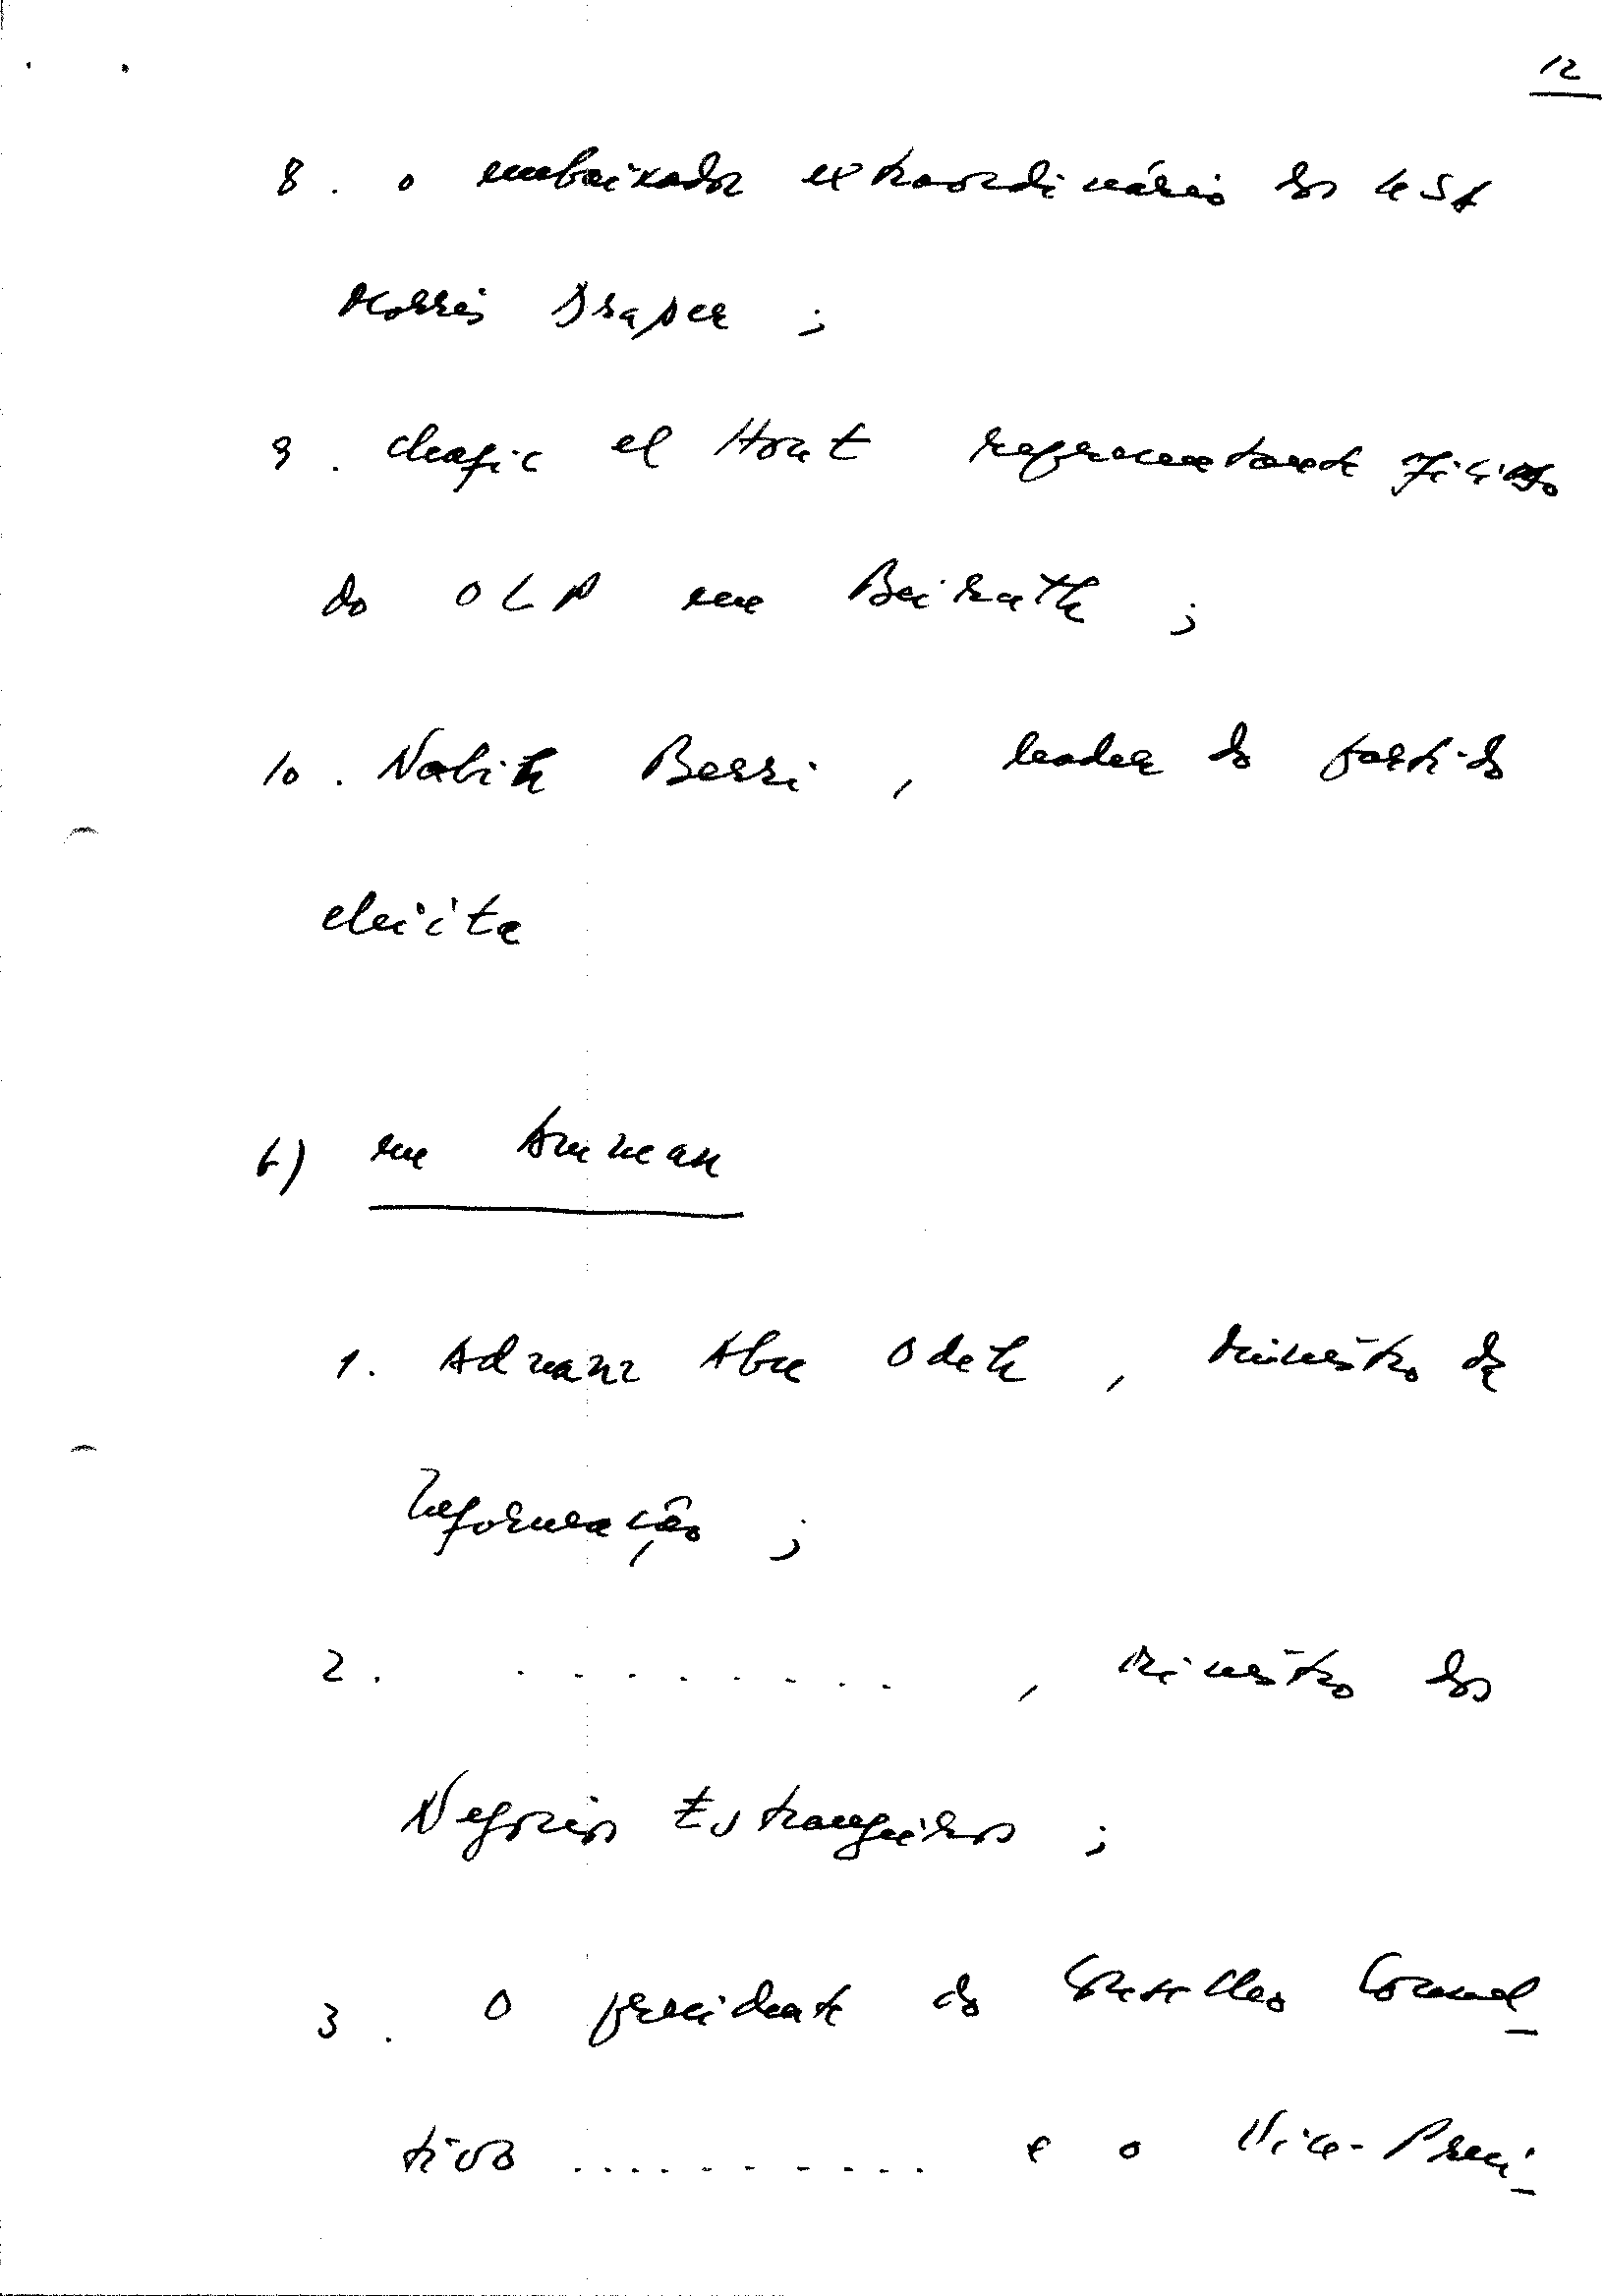 12
8. o embaixador extraordinário dos USA
Morris Draper ;
9. Chafic el Hout representante oficioso
da OLP em Beiruth ;
10. Nabih Berri , leader do partido
chiita
b) em Amman
1. Adnan Abu Odeh , ministro da
Informação ;
2. ........ , Ministro dos
Negócios Estrangeiros ;
3. O presidente do Conselho Consul_
tivo .......... e o Vice-Presi_